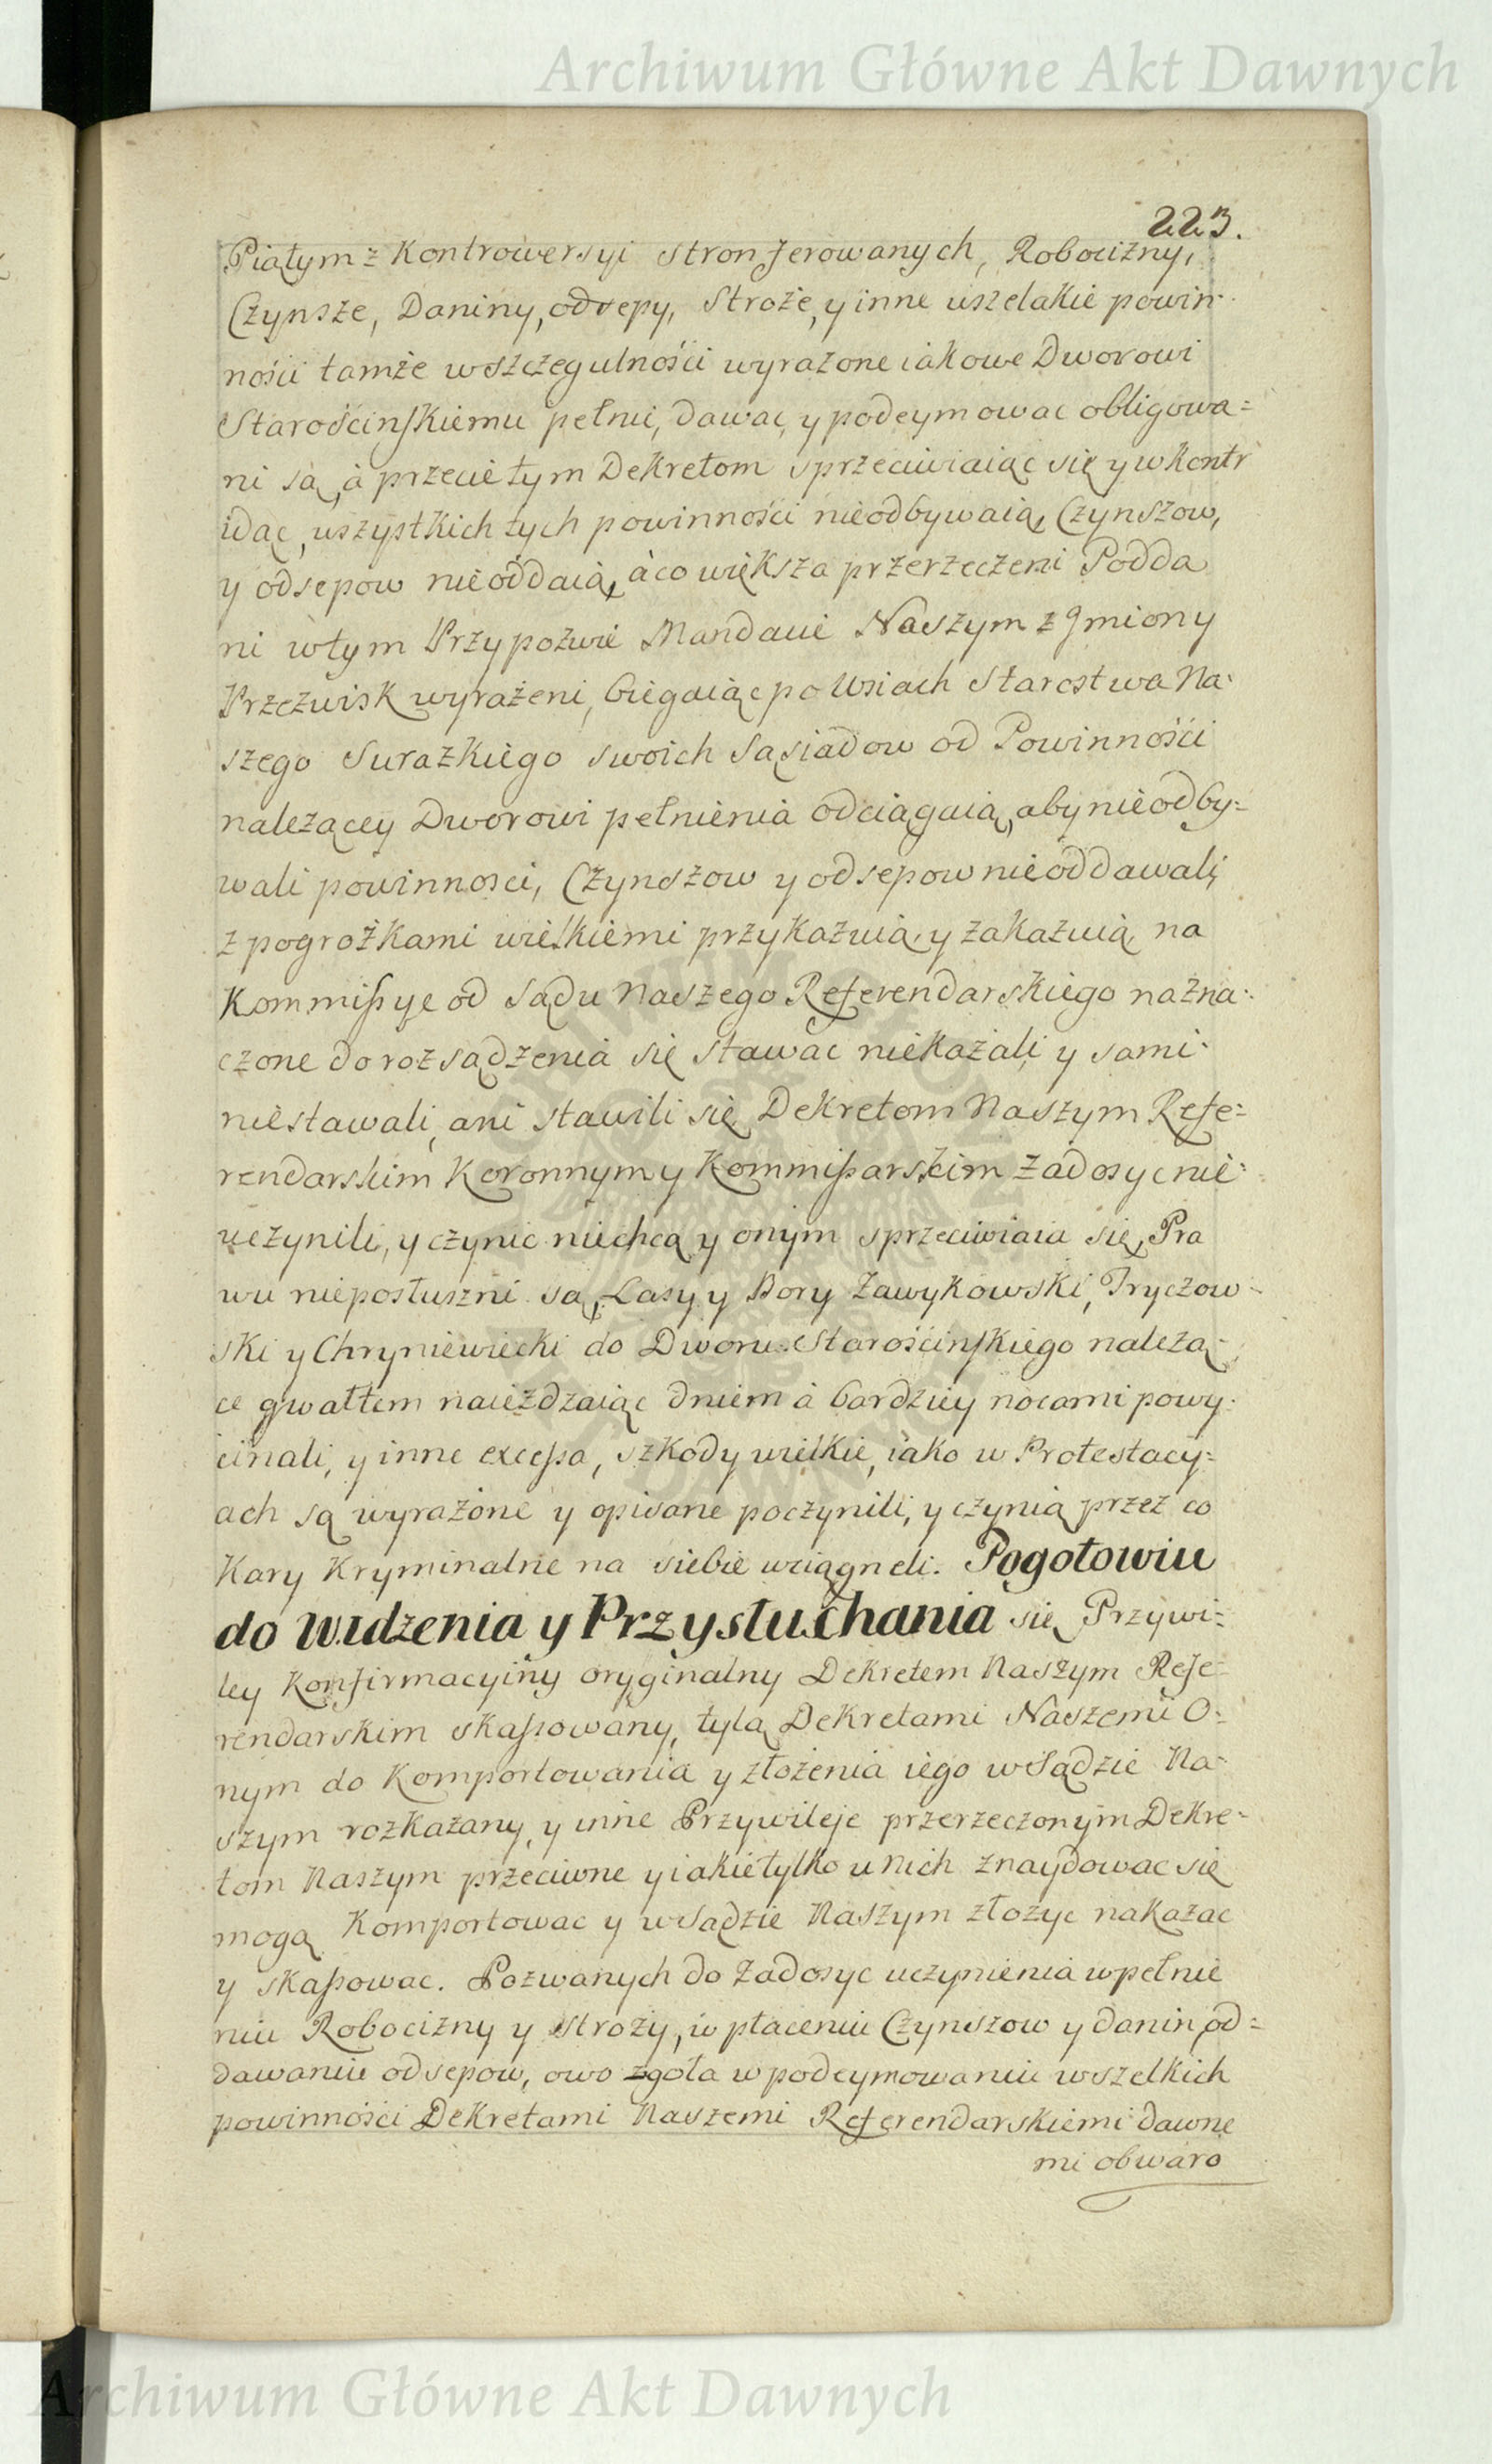 Archiwum Główne Akt Dawnych
223.
Piątym z Kontrowersyi stron ferowanych, Robocizny,
Czynsze, Daniny, odsepy, Stroże, y inne uszelakie powin-
nośii tamże wszczegulnośii wyrażone iakowe Dworowi
Starościnskiemu pełnic, dawac, y podeymowac obligowa=
ni są, à przecie tym Dekretom sprzeciwiaiąc się y wkontr
idąc, wszystkich tych powinnośii nieodbywaią, Czynszow,
y odsepow nieóddaią, àco większa przerzeczeni Podda
ni wtym Przypozwie Mandacie Naszym z Jmiony
Przezwisk wyrażeni, biegaiąc po Wsiach Starostwa Na-
szego Surazkiego swoich Sąsiadow od Powinnośći
należącey Dworowi pełnienia odciągaią, aby nieodby=
wali powinnosci, Czynszow y odsepow nieóddawali,
z pogrożkami wielkiemi przykazuią, y zakazuią, na
Kommissye od Sądu Naszego Referendarskiego nazna-
czone do rozsądzenia się stawac niekazali, y sami-
niestawali, ani stawili się, Dekretom Naszym Refe=
rendarskim Koronnym y Kommissarskim zadosyc nie-
uczynili, y czynic niechcą y onym sprzeciwiaią się, Pra
wu nieposłuszni są, Lasy y Bory Zawykowski, Tryczow-
ski y Chryniewiecki do Dworu Starościnskiego należą-
ce gwałtem naieżdzaiąc dniem à bardziey nocami powy-
cinali, y inne excessa, szkody wielkie, iako w Protestacy=
ach są wyrażone y opisane poczynili, y czynią przez co
Kary Kryminalne na siebie wciągneli. Pogotowiu
do Widzenia y Przysłuchania się Przywi=
ley Konfirmacyiny oryginalny Dekretem Naszym Refe=
rendarskim skassowany, tylą Dekretami Naszemi O=
nym do Komportowania y złożenia iego w Sądzie Na-
szym rozkazany, y inne Przywileje przerzeczonym Dekre=
tom Naszym przeciwne y iakie tylko u Nich znaydowac się
mogą Komportowac y w Sądzie Naszym złożyc nakazac
y skassowac. Pozwanych do Zadosyc uczynienia w pełnie
niu Robocizny y Stroży, w płaceniu Czynszow y danin od=
dawaniu odsepow, owo zgoła w podeymowaniu wszelkich
powinnośći Dekretami Naszemi Referendarskiemi dawne
mi obwaro
Archiwum Główne Akt Dawnych